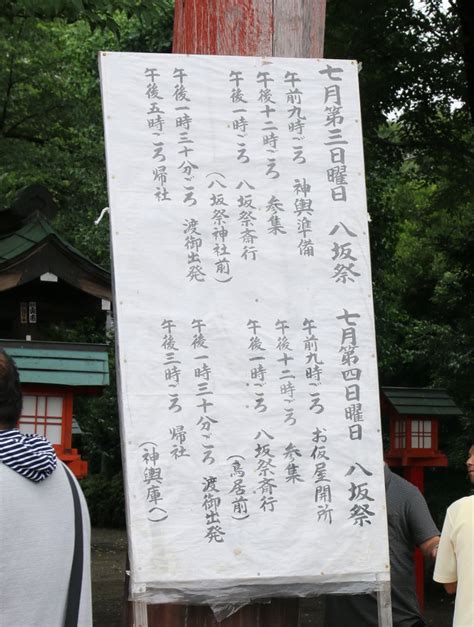 七月第三日曜日 八坂祭
午前九時ごろ 神輿準備
午後十二時ごろ 参集
午後一時ごろ 八坂祭斎行
(八坂祭神社前)
午後一時三十分ごろ 渡御出発
午後五時ごろ 帰社
七月第四日曜日 八坂祭
午前九時ごろ お仮屋開所
午後十二時ごろ 参集
午後一時ごろ 八坂祭斎行
(鳥居前)
午後一時三十分ごろ 渡御出発
午後三時ごろ 帰社
(神輿庫へ)